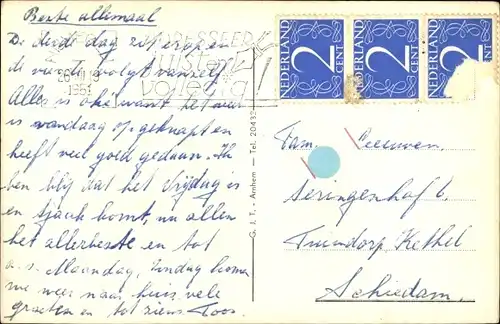 Beste allemaal
De derde dag zit er op en
de vierde volgt vanzelf
Alles is oke want het weer
is vandaag op geknapt en
heeft veel goed gedaan. Ik
ben blij dat het Vrijdag is
en Sjaak komt, nu allen
het allerbeste en tot
a.s. Maandag, Zondag komen
we weer naar huis. vele
groeten en tot ziens Toos.
ADRESSEER
JUIST EN
VOLLEDIG!
1951
NEDERLAND
2
CENT
NEDERLAND
2
CENT
NEDERLAND
2
CENT
G. A. T. - Arnhem - Tel. 20432
Fam. Leeuwen
Seringenhof 6
Tuindorp Kethel
Schiedam.